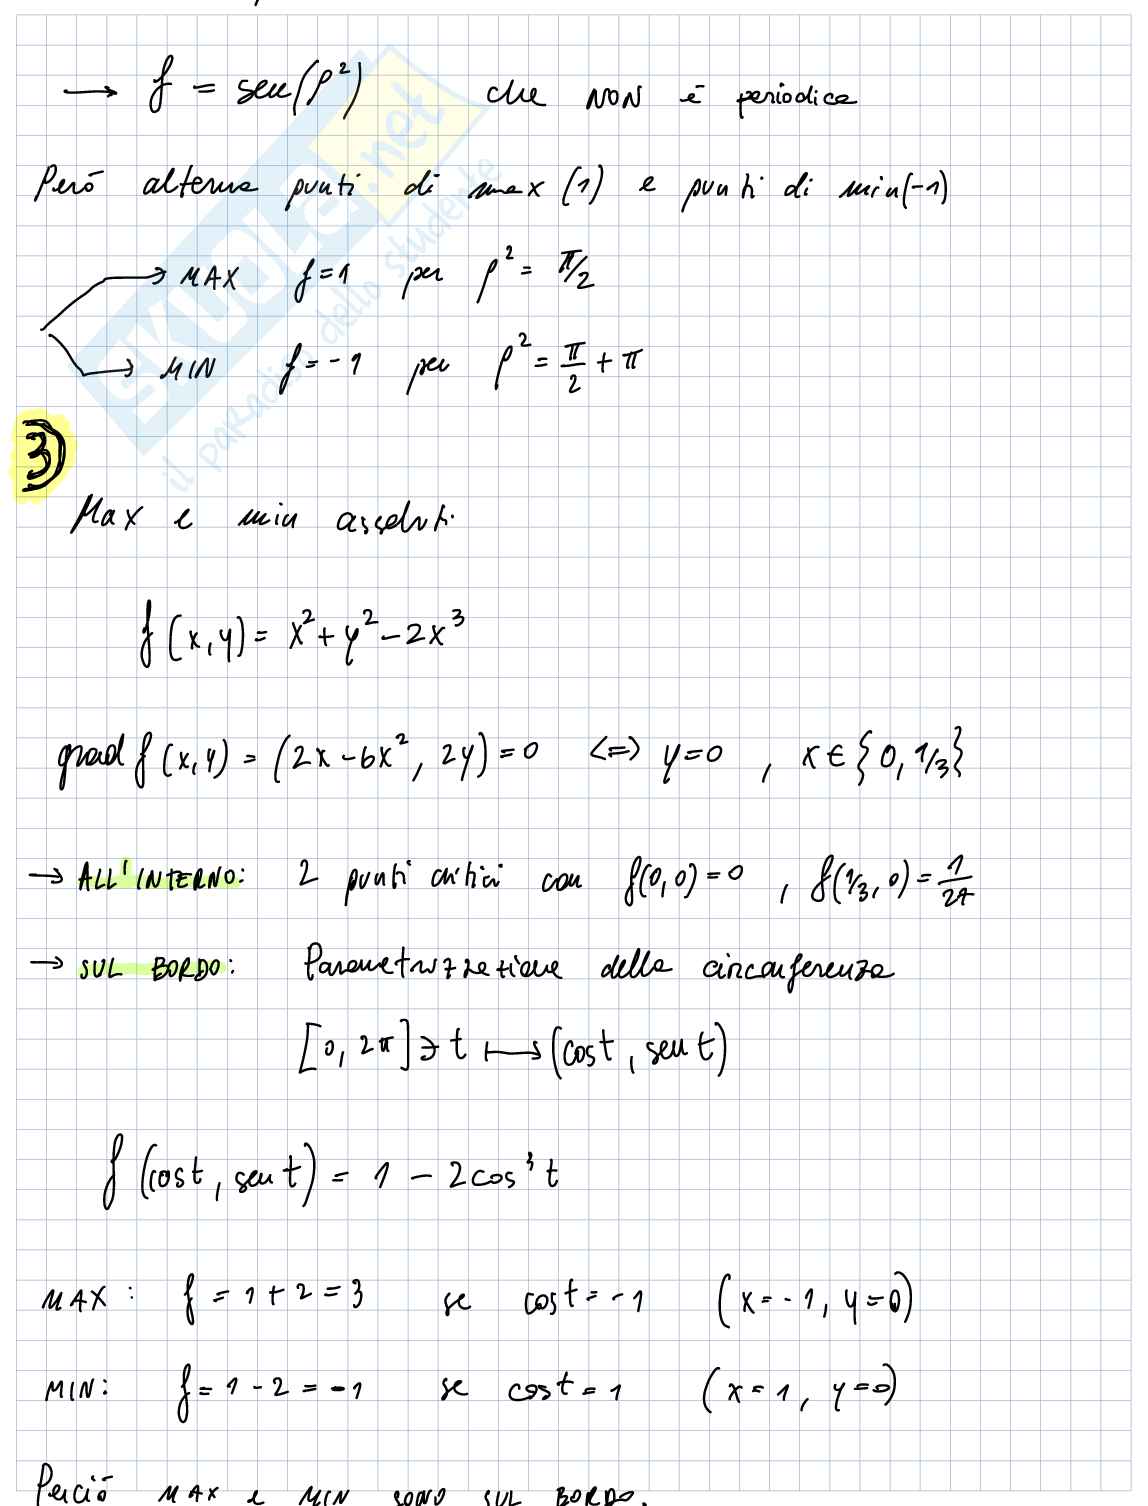 → f = sen(ρ²) che NON è periodica
Però alterna punti di max (1) e punti di min (-1)
→ MAX f=1 per ρ² = π/2
→ MIN f=-1 per ρ² = π/2 + π
3)
Max e min assoluti
f(x,y) = x² + y² - 2x³
grad f(x,y) = (2x - 6x², 2y) = 0 <=> y=0 , x ∈ {0, 1/3}
→ ALL'INTERNO: 2 punti critici con f(0,0) = 0 , f(1/3, 0) = 1/27
→ SUL BORDO: Parametrizzazione della circonferenza
[0, 2π] ∋ t ↦ (cos t, sen t)
f(cos t, sen t) = 1 - 2cos³ t
MAX: f = 1 + 2 = 3 se cos t = -1 (x = -1, y = 0)
MIN: f = 1 - 2 = -1 se cos t = 1 (x = 1, y = 0)
Perciò MAX e MIN sono SUL BORDO.
SKUOLA.net
il paradiso dello studente